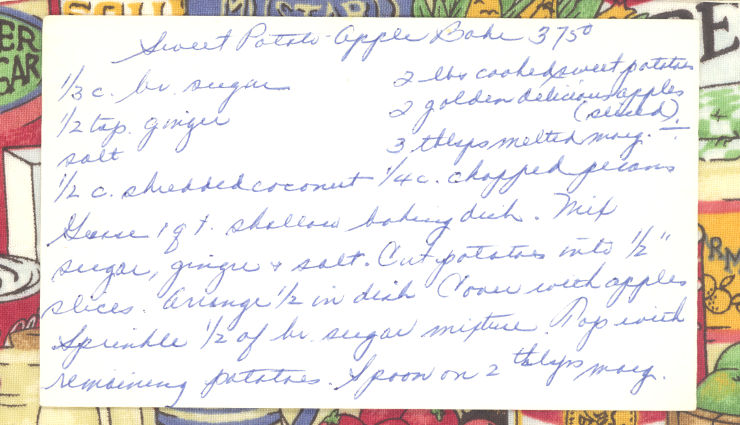 Sweet Potato-Apple Bake 375°
1/3 c. br. sugar
2 lbs cooked sweet potatoes
1/2 tsp. ginger
2 golden delicious apples
(sliced)
salt
3 tblsps melted marg. ÷
1/2 c. shredded coconut 1/4 c. chopped pecans
Grease 1 qt. shallow baking dish. Mix
sugar, ginger + salt. Cut potatoes into 1/2"
slices. Arrange 1/2 in dish Cover with apples
Sprinkle 1/2 of br. sugar mixture. Top with
remaining potatoes. Spoon on 2 tblsps marg.
ER
GAR
SOUP
STAR
E
RM